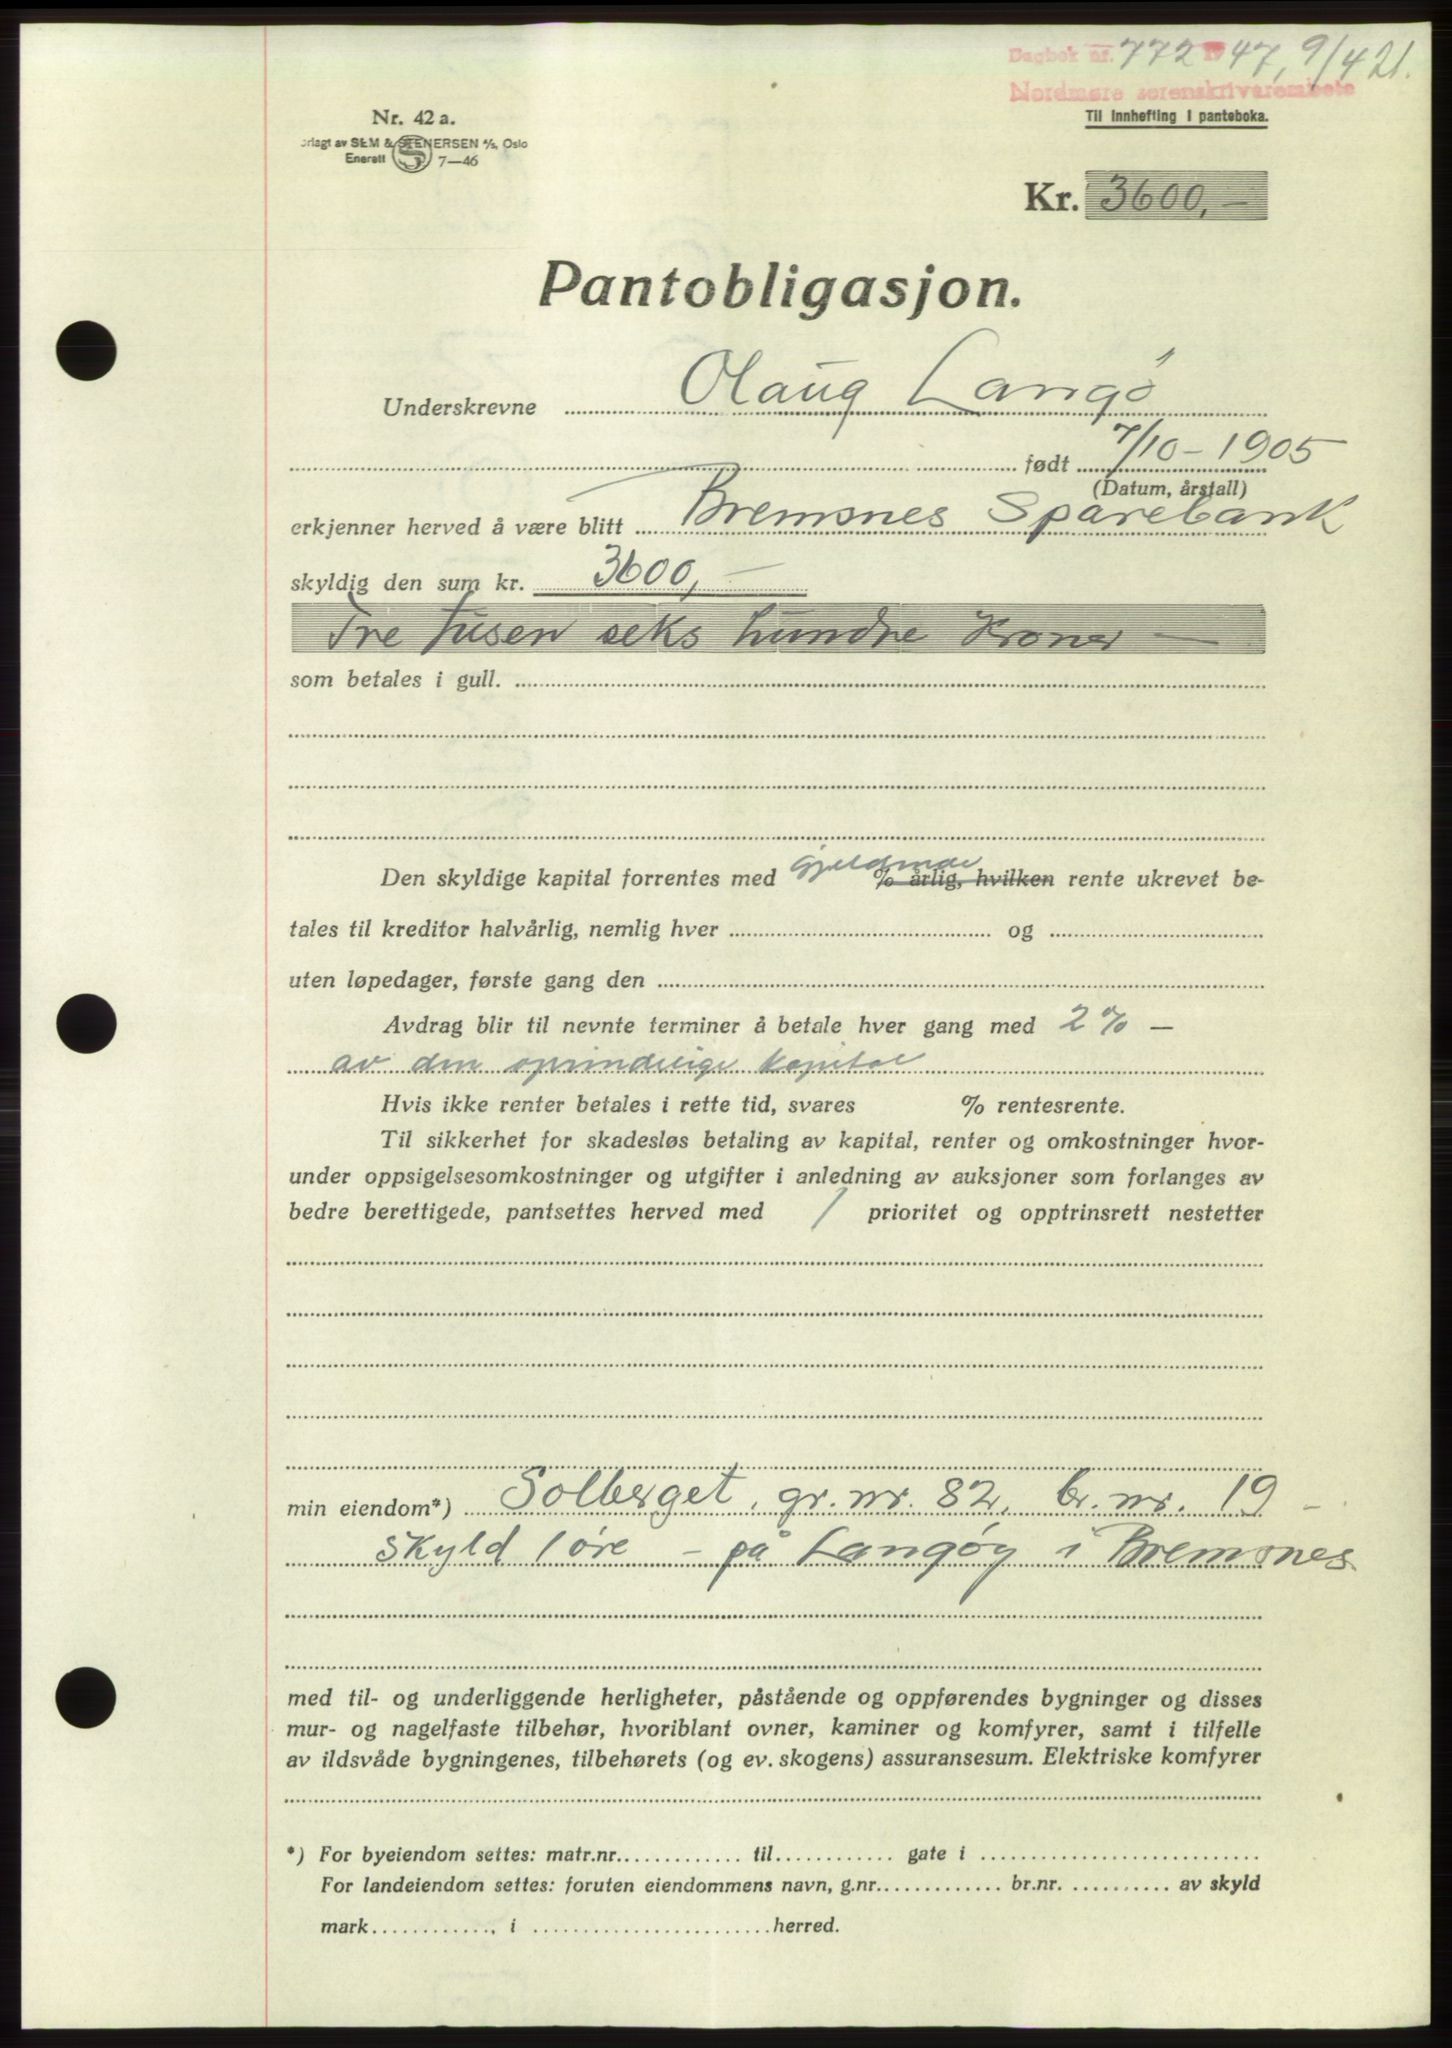 Dagbok nr. 772 1947, 9/4 21.
Nordmøre sorenskriverembete
Til innhefting i panteboka.
Nr. 42 a.
orlagt av SEM & STENERSEN A/S, Oslo
Enerett S 7—46
Kr. 3600,—
Pantobligasjon.
Underskrevne Olaug Langö
født 7/10 - 1905
(Datum, årstall)
erkjenner herved å være blitt Bremsnes Sparebank
skyldig den sum kr. 3600,—
Tre tusen seks hundre Kroner —
som betales i gull.
Den skyldige kapital forrentes med gjeldende % årlig, hvilken rente ukrevet be-
tales til kreditor halvårlig, nemlig hver og
uten løpedager, første gang den
Avdrag blir til nevnte terminer å betale hver gang med 2% —
av den oprindelige kapital
Hvis ikke renter betales i rette tid, svares % rentesrente.
Til sikkerhet for skadesløs betaling av kapital, renter og omkostninger hvor-
under oppsigelsesomkostninger og utgifter i anledning av auksjoner som forlanges av
bedre berettigede, pantsettes herved med 1 prioritet og opptrinsrett nestetter
min eiendom*) Solberget, gr. nr. 82, br. nr. 19 -
skyld 1 øre - på Langöy i Bremsnes.
med til- og underliggende herligheter, påstående og oppførendes bygninger og disses
mur- og nagelfaste tilbehør, hvoriblant ovner, kaminer og komfyrer, samt i tilfelle
av ildsvåde bygningenes, tilbehørets (og ev. skogens) assuransesum. Elektriske komfyrer
*) For byeiendom settes: matr.nr. til gate i
For landeiendom settes: foruten eiendommens navn, g.nr. br.nr. av skyld
mark , i herred.